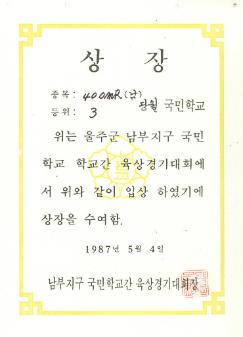 상장
종목: 400mR(남)
등위: 3 당월 국민학교
위는 울주군 남부지구 국민
학교 학교간 육상경기대회에
서 위와 같이 입상 하였기에
상장을 수여함.
1987년 5월 4일
남부지구 국민학교간 육상경기대회장